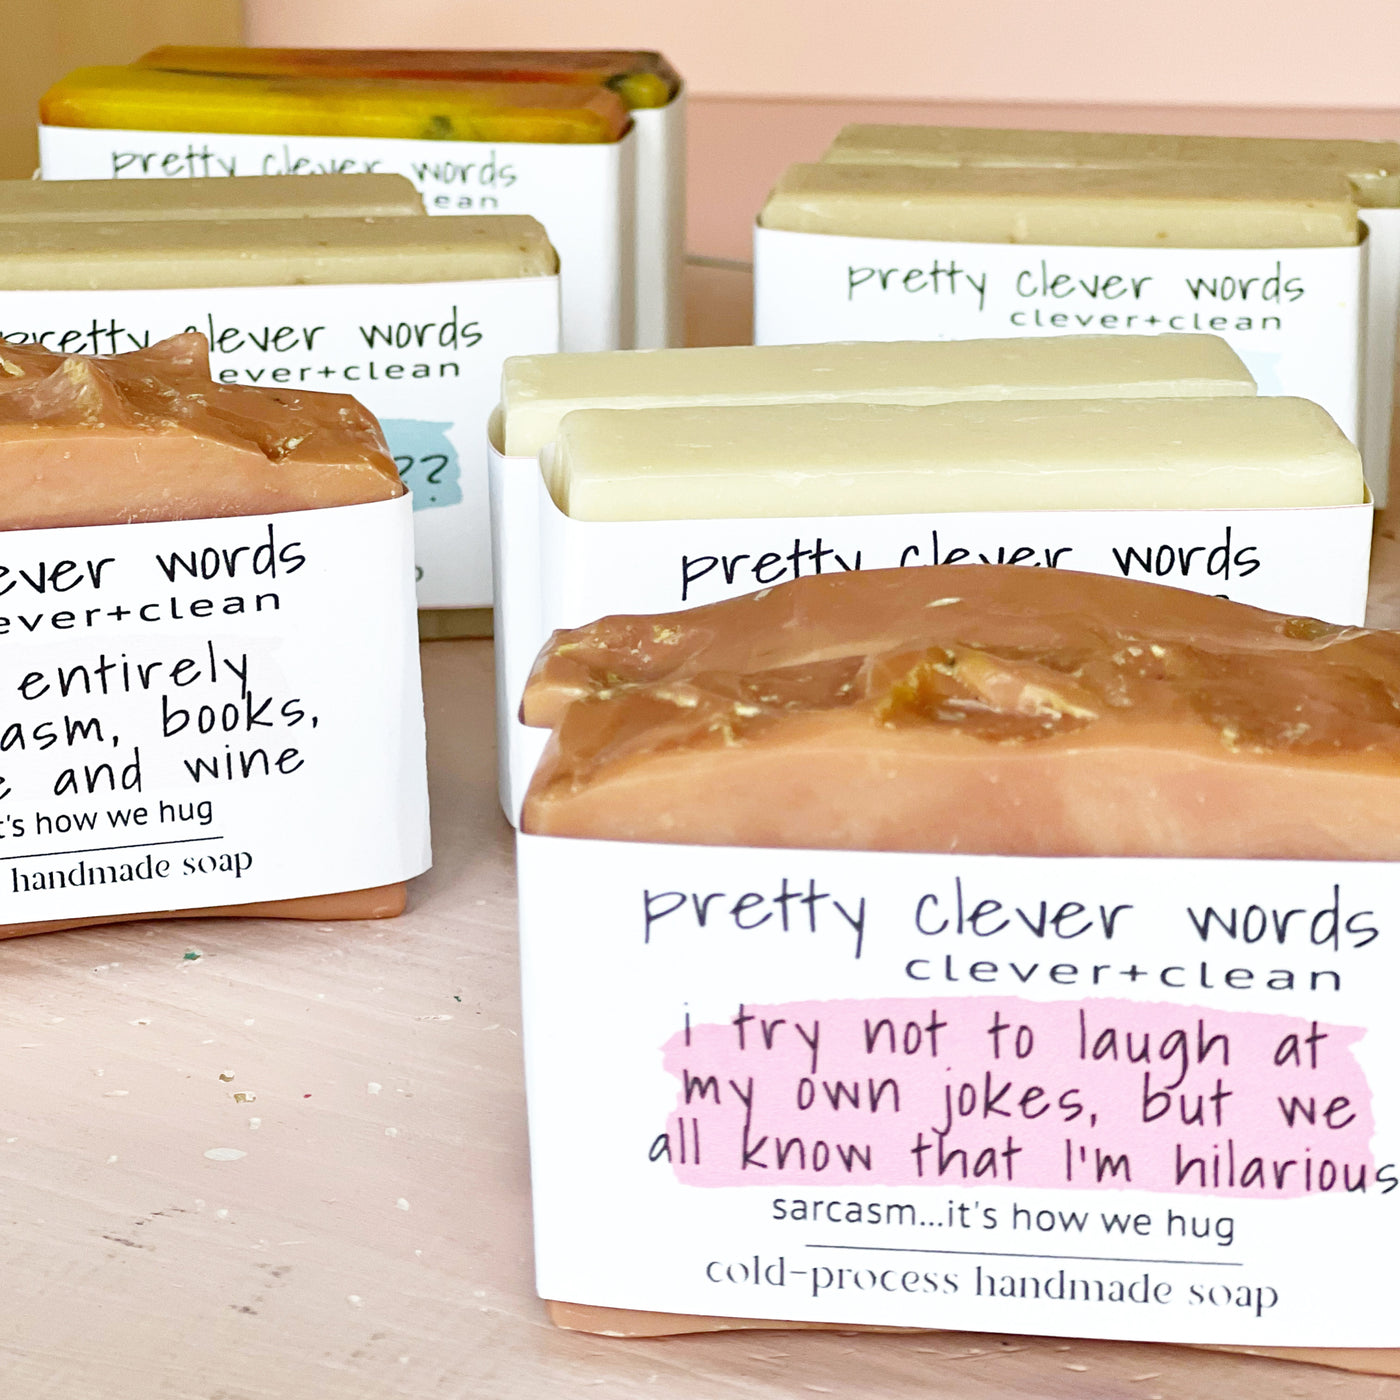 pretty clever words
clean
pretty clever words
clever+clean
pretty clever words
ever+clean
??
ever words
ever+clean
entirely
asm, books,
e and wine
t's how we hug
handmade soap
pretty clever words
pretty clever words
clever+clean
i try not to laugh at
my own jokes, but we
all know that I'm hilarious
sarcasm...it's how we hug
cold-process handmade soap